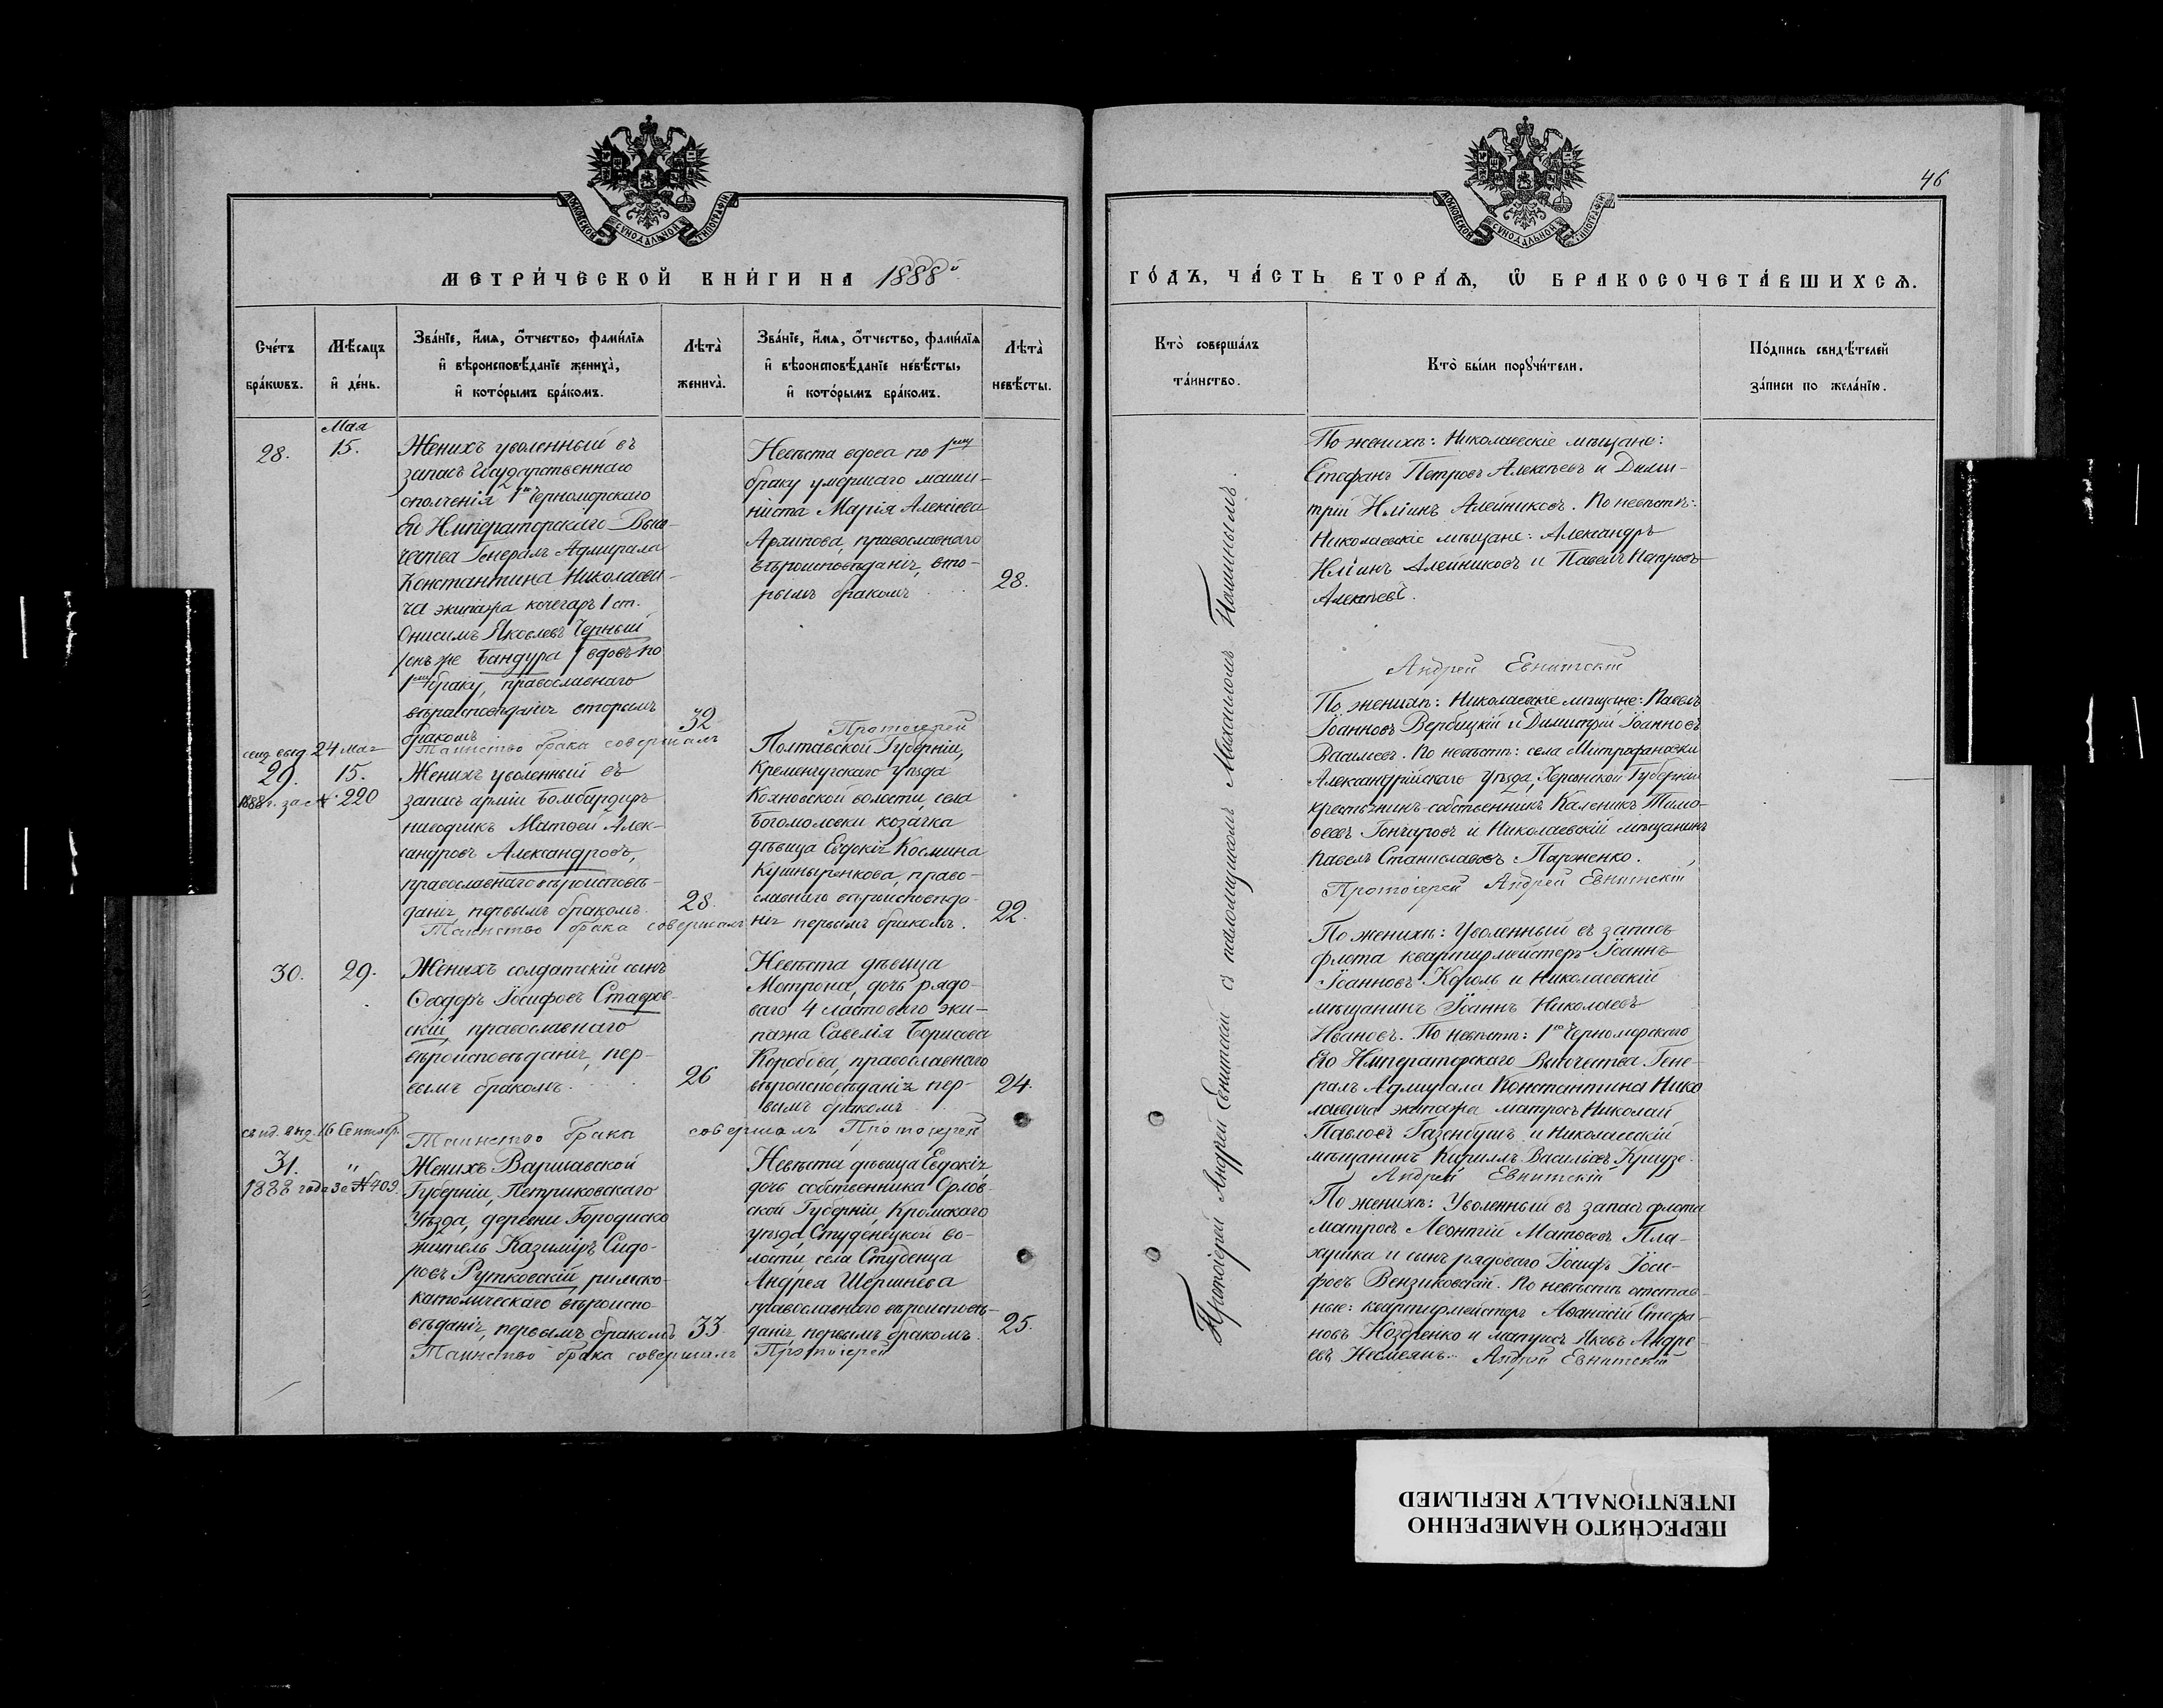 46
МЕТРИ́ЧЕСКОЙ КНИ́ГИ НА 1888й
ГО́ДЪ, ЧА́СТЬ ВТОРА́Я, Ѡ БРАКОСОЧЕТА́ВШИХСЯ.
Сче́тъ бра́ковъ.
Мѣ́сяцъ и҆ де́нь.
Зва́нїе, и҆́мѧ, ѻ҆́тчество, фами́лїѧ
и҆ вѣроисповѣ́данїе жениха̀,
и҆ кото́рымъ бра́комъ.
Лѣта̀ жениха̀.
Зва́нїе, и҆́мѧ, ѻ҆́тчество, фами́лїѧ
и҆ вѣроисповѣ́данїе невѣ́сты,
и҆ кото́рымъ бра́комъ.
Лѣта̀ невѣ́сты.
Кто̀ соверша́лъ та́инство.
Кто̀ бы́ли порꙋчи́тели.
По́дпись свидѣ́телей
за́писи по жела́нїю.
28.
Мая
15.
Женихъ уволенный въ
запасъ Государственнаго
ополченія 1го Черноморскаго
Его Императорскаго Высо-
чества Генералъ Адмирала
Константина Николаеви-
ча экипажа кочегаръ 1 ст.
Онисимъ Яковлевъ Черный
/онъ же Бандура/ вдовъ по
1му браку, православнаго
вѣроисповѣданія вторымъ
бракомъ
32
Невѣста вдова по 1му
браку умершаго маши-
ниста Марія Алексіева
Архипова, православнаго
вѣроисповѣданія, вто-
рымъ бракомъ
28.
По женихѣ: Николаевскіе мѣщане:
Стефанъ Петровъ Алексѣевъ и Дими-
трій Иліинъ Алейниковъ. По невѣстѣ:
Николаевскіе мѣщане: Александръ
Иліинъ Алейниковъ и Павелъ Петровъ
Алексѣевъ.
Таинство брака совершалъ Протоіерей
Андрей Евнитскій
свид. выд. 24 мая
29.
15.
1888 г. за № 220
Женихъ уволенный въ
запасъ арміи бомбардиръ
наводчикъ Матѳей Алек-
сандровъ Александровъ,
православнаго вѣроисповѣ-
данія, первымъ бракомъ.
28.
Полтавской Губерніи,
Кременчугскаго уѣзда
волости, села
Богомоловки козачка
дѣвица Евдокія Космина
Кушныренкова, право-
славнаго вѣроисповѣда-
нія первымъ бракомъ.
22.
По женихѣ: Николаевскіе мѣщане: Павелъ
Іоанновъ Вербицкій и Димитрій Іоанновъ
Васильевъ. По невѣстѣ: села Митрофановки
Александрійскаго уѣзда, Херсонской Губерніи
крестьянинъ-собственникъ Каленикъ Тимо-
ѳеевъ Гончаровъ и Николаевскій мѣщанинъ
Павелъ Станиславовъ Парженко.
Таинство брака совершалъ
Протоіерей Андрей Евнитскій
30.
29.
Женихъ солдатскій сынъ
Ѳеодоръ Іосифовъ Ставров-
скій, православнаго
вѣроисповѣданія, пер-
вымъ бракомъ.
26
Невѣста дѣвица
Мотрона, дочь рядо-
ваго 4 ластоваго эки-
пажа Савелія Борисова
Коробова, православнаго
вѣроисповѣданія пер-
вымъ бракомъ
24.
По женихѣ: Уволенный въ запасъ
флота квартирмейстеръ Іоаннъ
Іоанновъ Король и Николаевскій
мѣщанинъ Іоаннъ Николаевъ
Ивановъ. По невѣстѣ: 1го Черноморскаго
Его Императорскаго Высочества Гене-
ралъ Адмирала Константина Нико
лаевича экипажа матросъ Николай
Павловъ Газенбушъ и Николаевскій
мѣщанинъ Кириллъ Васильевъ Краузе.
Таинство брака совершалъ Протоіерей
Андрей Евнитскій
свид. выд. 16 Сентябр.
31.
"
1888 года за № 409.
Женихъ Варшавской
Губерніи, Петриковскаго
Уѣзда, деревни Городиско
житель Казиміръ Сидо-
ровъ Рутковскій, римско-
католическаго вѣроиспо-
вѣданія, первымъ бракомъ
33
Невѣста дѣвица Евдокія,
дочь собственника Орлов-
ской Губерніи, Кромскаго
уѣзда, Студенецкой во-
лости, села Студенца
Андрея Шершнева
православнаго вѣроисповѣ-
данія, первымъ бракомъ.
25.
По женихѣ: Уволенный въ запасъ флота
матросъ Леонтій Матѳеевъ Пла-
хушка и сынъ рядоваго Іосифъ Іоси-
фовъ Вензиковскій. По невѣстѣ отстав-
ные: квартирмейстеръ Аѳанасій Стефа-
новъ Ноздренко и матросъ Яковъ Андре-
евъ Несмеянъ.
Таинство брака совершалъ Протоіерей
Андрей Евнитскій
Протоіерей Андрей Евнитскій съ псаломщикомъ Михаиломъ Пашинымъ.
ПЕРЕСНЯТО НАМЕРЕННО
INTENTIONALLY REFILMED